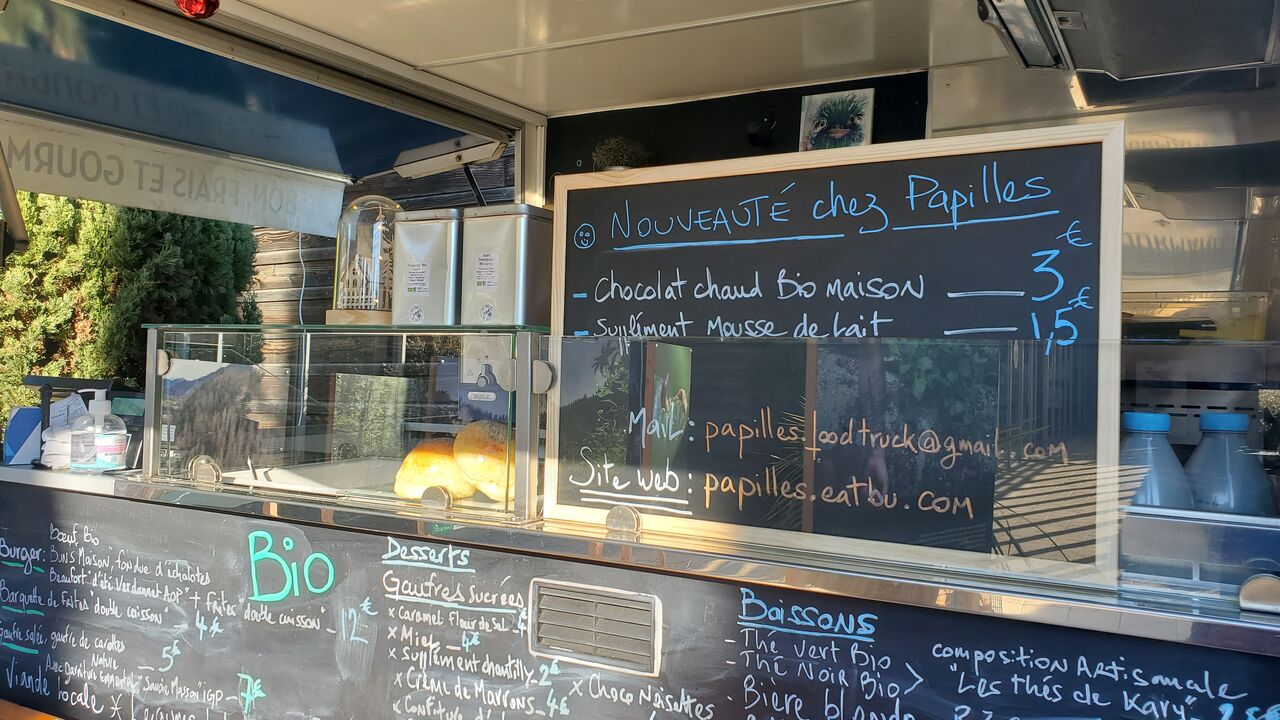 BON, FRAIS ET GOURM
☺ NOUVEAUTÉ chez Papilles
- Chocolat chaud Bio maison — 3€
- Supplément Mousse de lait — 1,5€
Mail : papilles.foodtruck@gmail.com
Site web : papilles.eatbu.com
Burger: Bœuf Bio
"Buns Maison", fondue d'échalotes
Beaufort d'été Verdannet AOP + frites "double cuisson" - 12€
Barquette de frites "double cuisson"
4€
Gaufre salée, gaufre de carottes
Nature - 5€
"Savoie Maison" iGP - 7€
Viande locale
Bio
Desserts
Gaufres Sucrées
x Caramel Fleur de Sel
x Miel 4€
x Supplément chantilly 2€
x Crème de Marrons - 4€
x Choco Noisettes
x Confiture
Boissons
- Thé Vert Bio
- Thé Noir Bio >
composition Artisanale
"Les thés de Kary"
- Bière blonde